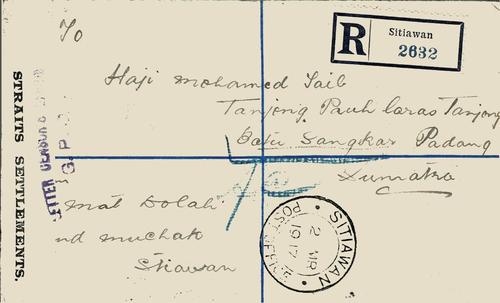 To
R Sitiawan
2632
Haji mohamed Taib
Tanjong Pauh laras Tanjong
Batu Sangkar Padang
Sumatra
STRAITS SETTLEMENTS.
LETTER CENSORED
G.P.
mat Dolah
nd muchato
Sitiawan
SITIAWAN
2 MR
1917
POST OFFICE